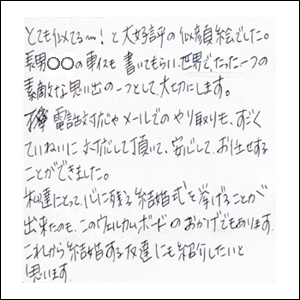 とても似てる〜！と大好評の似顔絵でした。
長男○○の車イスも書いてもらい、世界でたった一つの
素敵な思い出の一つとして、大切にします。
電話対応やメールでのやり取りも、すごく
ていねいに対応して頂いて、安心して、お任せする
ことができました。
私達にとって、心に残る結婚式を挙げることが
出来たのも、このウェルカムボードのおかげでもあります。
これから結婚する友達にも紹介したいと
思います。